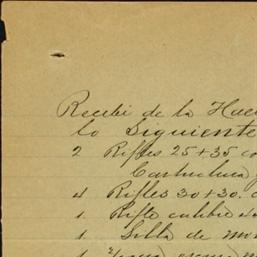 Recibi de la Hac
lo Siguiente
2 Rifles 25+35 co
Cartuchera
4 Rifles 30+30.
1 Rifle calibre
1 Silla de mo
1